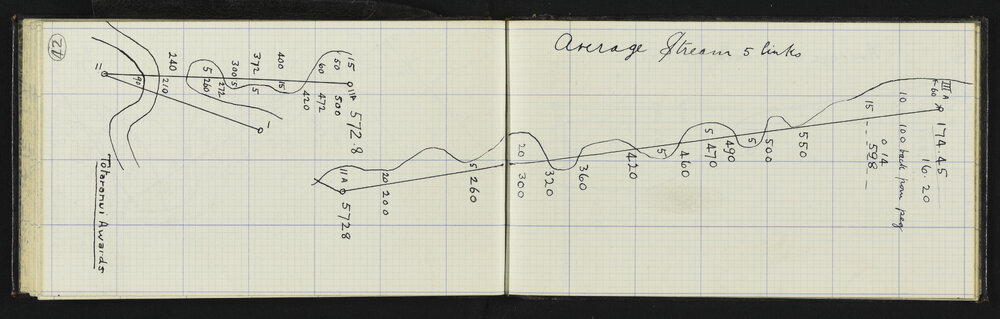 Average Stream 5 links
42
240
210
90
II
I
5
260
272
300
5
372
15
400
15
420
60
472
50
500
15
IIA
572.8
Totaranui Awards
IIA
5728
20
200
5
260
20
300
320
360
420
5
460
5
470
490
5
500
550
15
0 14
598
10
100 back from peg
III A
60
174.45
16.20